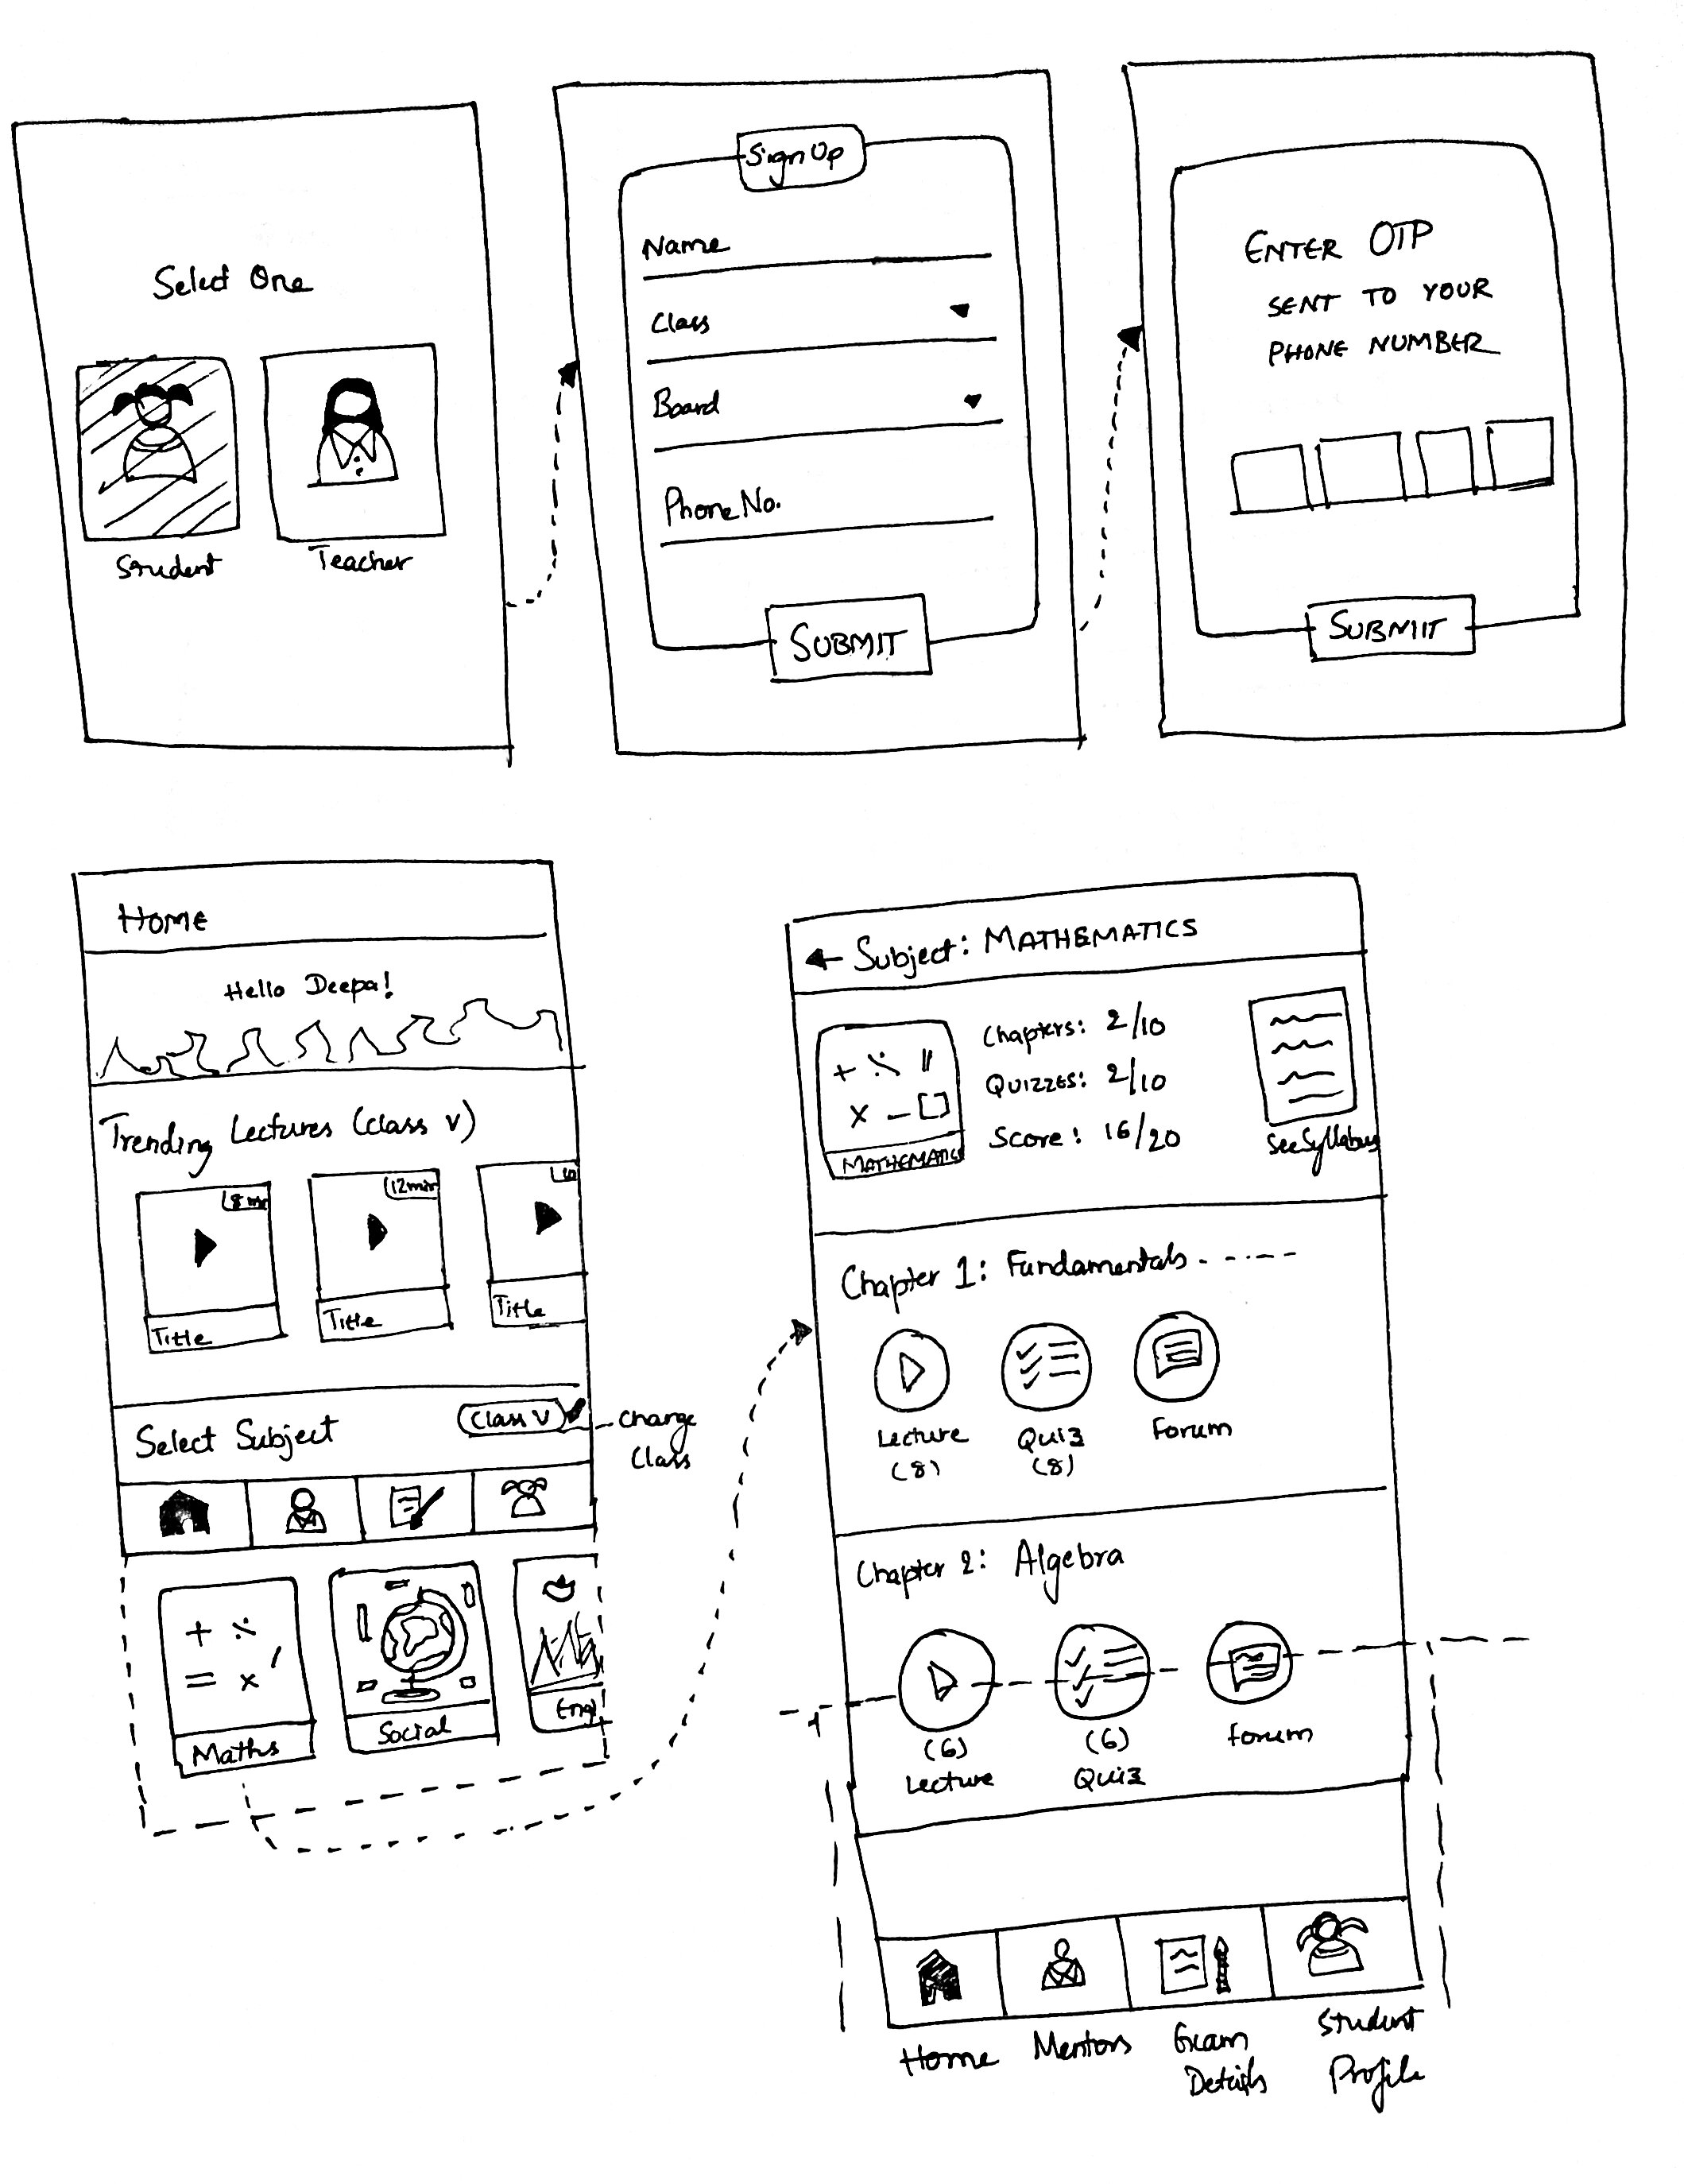 Select One
Student
Teacher
Sign Up
Name
Class
Board
Phone No.
SUBMIT
ENTER OTP
SENT TO YOUR
PHONE NUMBER
SUBMIT
HOME
Hello Deepa!
Trending Lectures (class V)
12min
Title
Title
Title
Select Subject
Class V
Change
Class
Maths
Social
Engl
Subject: MATHEMATICS
MATHEMATICS
Chapters: 2/10
QUIZZES: 2/10
Score: 16/20
See Syllabus
Chapter 1: Fundamentals - - - - -
Lecture
(8)
Quiz
(8)
Forum
Chapter 2: Algebra
(6)
Lecture
(6)
Quiz
forum
Home
Mentors
Exam
Details
Student
Profile